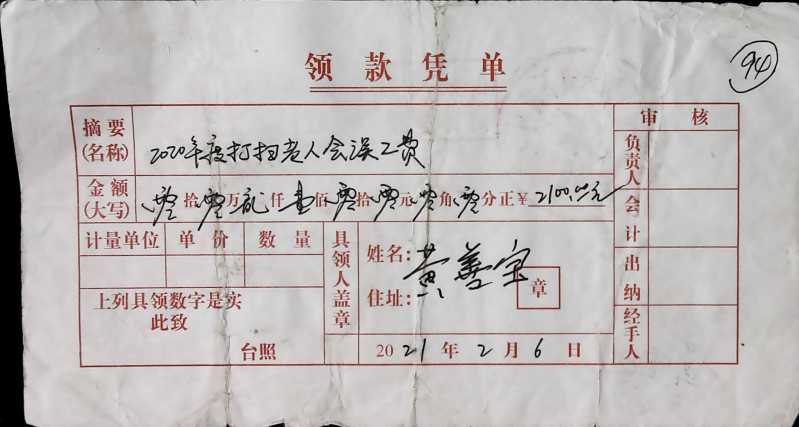 领款凭单
94
摘要(名称) 2020年度打扫老人会误工费
金额(大写) 零拾零万贰仟壹佰零拾零元零角零分正¥2100.00元
计量单位 单价 数量
上列具领数字是实
此致
台照
具领人盖章
姓名：黄善宝
住址：
章
2021年2月6日
审核
负责人
会计
出纳
经手人